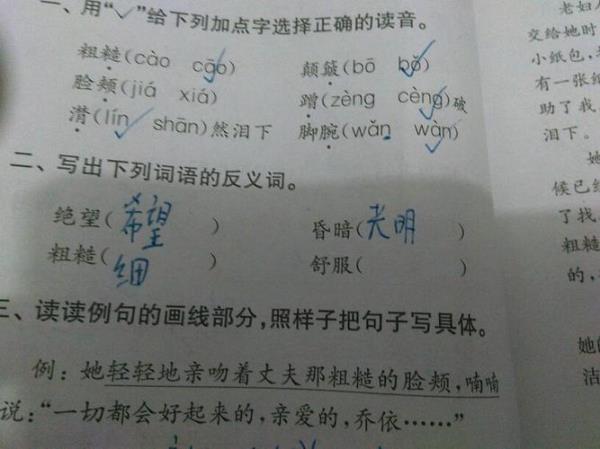 一、用“√”给下列加点字选择正确的读音。
粗糙(cào cāo) 颠簸(bō bǒ)
脸颊(jiá xiá) 蹭(zèng cèng)破
潸(lín shān)然泪下 脚腕(wǎn wàn)
二、写出下列词语的反义词。
绝望(希望) 昏暗(光明)
粗糙(细) 舒服( )
三、读读例句的画线部分,照样子把句子写具体。
例：她轻轻地亲吻着丈夫那粗糙的脸颊,喃喃
说：“一切都会好起来的,亲爱的,乔依……”
老妇
交给她时
小纸包,
有一张
助了我
泪下。
她
候已经
了找
粗糙
的,
她的
洁